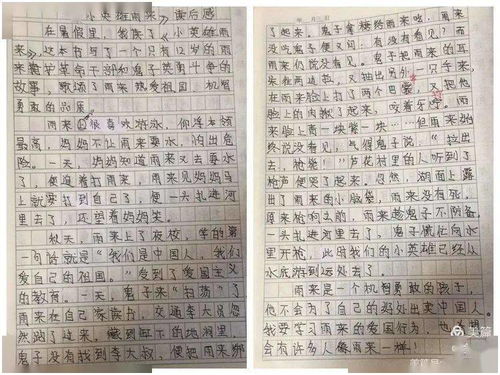 小英雄雨来》读后感
在暑假里,我读了《小英雄雨
来》,这本书写了一个只有12岁的雨
来掩护革命干部和鬼子英勇斗争的
故事,歌颂了雨来热爱祖国、机智
勇敢的品质
雨来很喜欢游泳,
最高,妈妈不让雨来耍水,怕出危
险。一天,妈妈知道雨来又去耍水
了,便追着打雨来,雨来见妈妈马
上就要打到自己了,便一头扎进河
里去了,还望着妈妈笑。
秋天,雨来上了夜校,学的第
一句话就是“我们是中国人,我们
爱自己的祖国。”受到了爱国主义
的教育。一天,鬼子来“扫荡”了,
雨来在自己家读书,交通李大叔忽
然跑了过来,藏到缸下的地洞里,
鬼子没有找到李大叔,便把雨来绑
年 月 日
了起来,鬼子拿糖给雨来吃,雨来
没吃鬼子便又问:有没有看见?而
雨来们说没有看见。鬼子把雨来的耳
来在两边扯,又抽出另外一只手来,
在雨来脸上打了两个巴掌,又把他
脸上的肉揪了起来,咬着牙拧。雨
来脸上青一块紫一块……但雨来始
终说没看见,气得鬼子说:“拉出
去,枪毙!”芦花村里的人听到了
枪声便哭了起来,忽然,湖面上露
出了雨来的小脑袋,雨来没有死,
原来枪响以前,雨来趁鬼子不防备,
一头扎进河里去了。鬼子慌忙向水
里开枪,此时我们的小英雄已经从
水底游到远处去了。
雨来是一个机智勇敢的孩子,
他不会为了自己的好处出卖中国人。
我要学习雨来的爱国行为,
会有许多人像雨来一样!
美篇